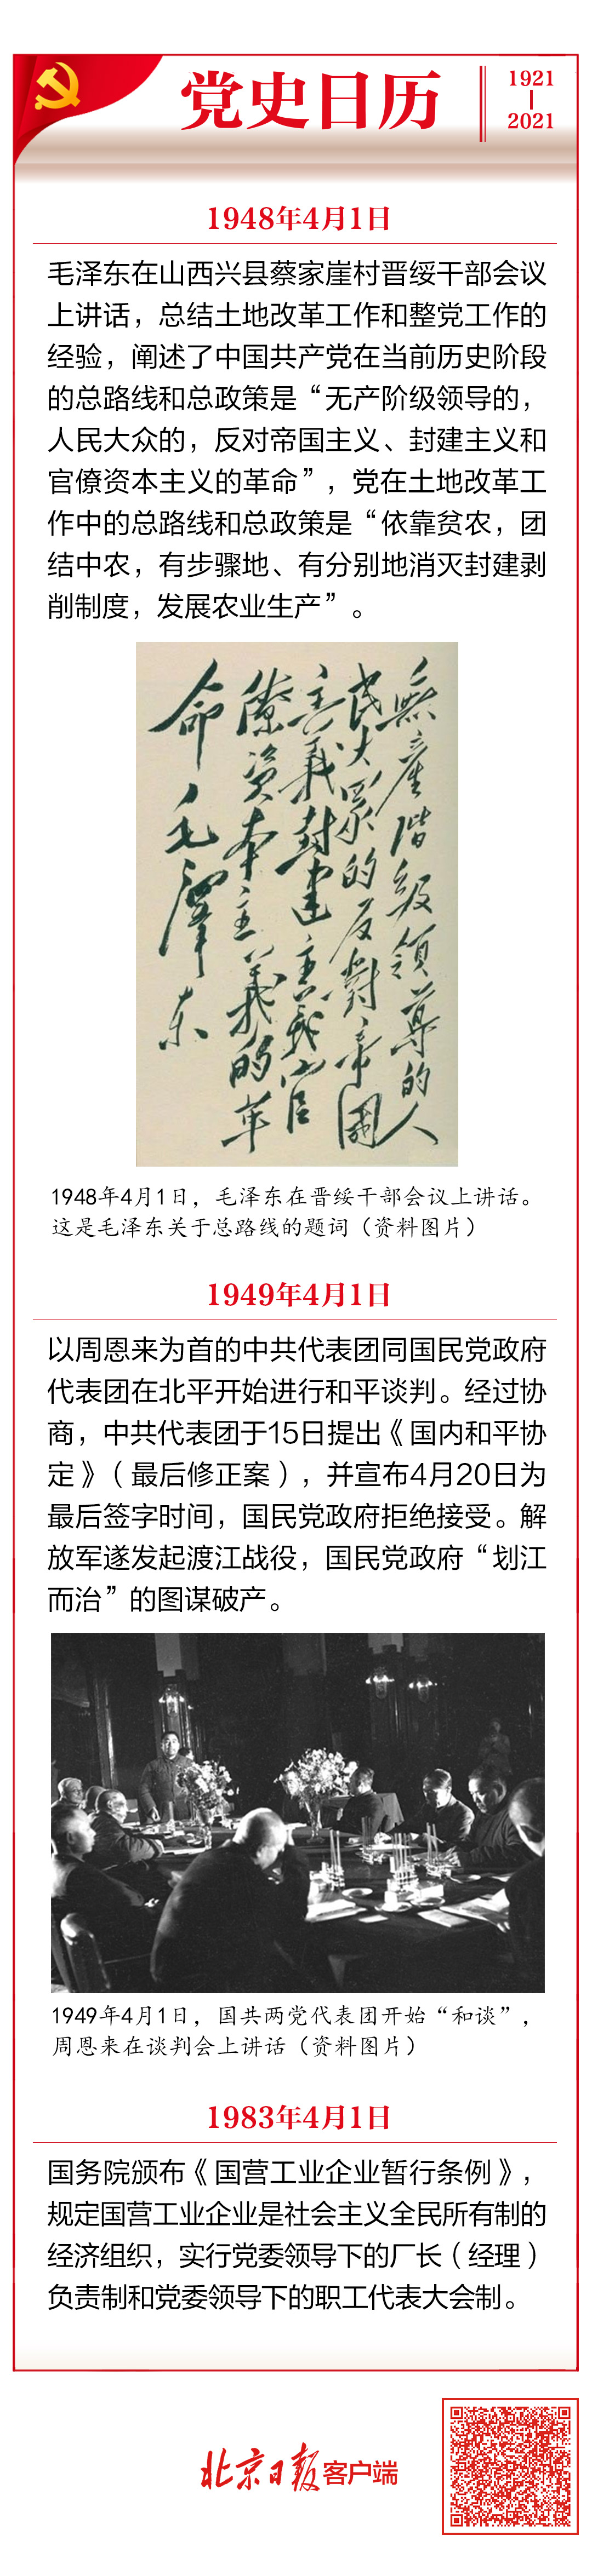 党史日历
1921
2021
1948年4月1日
毛泽东在山西兴县蔡家崖村晋绥干部会议
上讲话，总结土地改革工作和整党工作的
经验，阐述了中国共产党在当前历史阶段
的总路线和总政策是“无产阶级领导的，
人民大众的，反对帝国主义、封建主义和
官僚资本主义的革命”，党在土地改革工
作中的总路线和总政策是“依靠贫农，团
结中农，有步骤地、有分别地消灭封建剥
削制度，发展农业生产”。
無產階级領導的人
民大眾的反對帝國
主義封建主義官
僚资本主義的革
命毛澤东
1948年4月1日，毛泽东在晋绥干部会议上讲话。
这是毛泽东关于总路线的题词（资料图片）
1949年4月1日
以周恩来为首的中共代表团同国民党政府
代表团在北平开始进行和平谈判。经过协
商，中共代表团于15日提出《国内和平协
定》（最后修正案），并宣布4月20日为
最后签字时间，国民党政府拒绝接受。解
放军遂发起渡江战役，国民党政府“划江
而治”的图谋破产。
1949年4月1日，国共两党代表团开始“和谈”，
周恩来在谈判会上讲话（资料图片）
1983年4月1日
国务院颁布《国营工业企业暂行条例》，
规定国营工业企业是社会主义全民所有制的
经济组织，实行党委领导下的厂长（经理）
负责制和党委领导下的职工代表大会制。
北京日报客户端